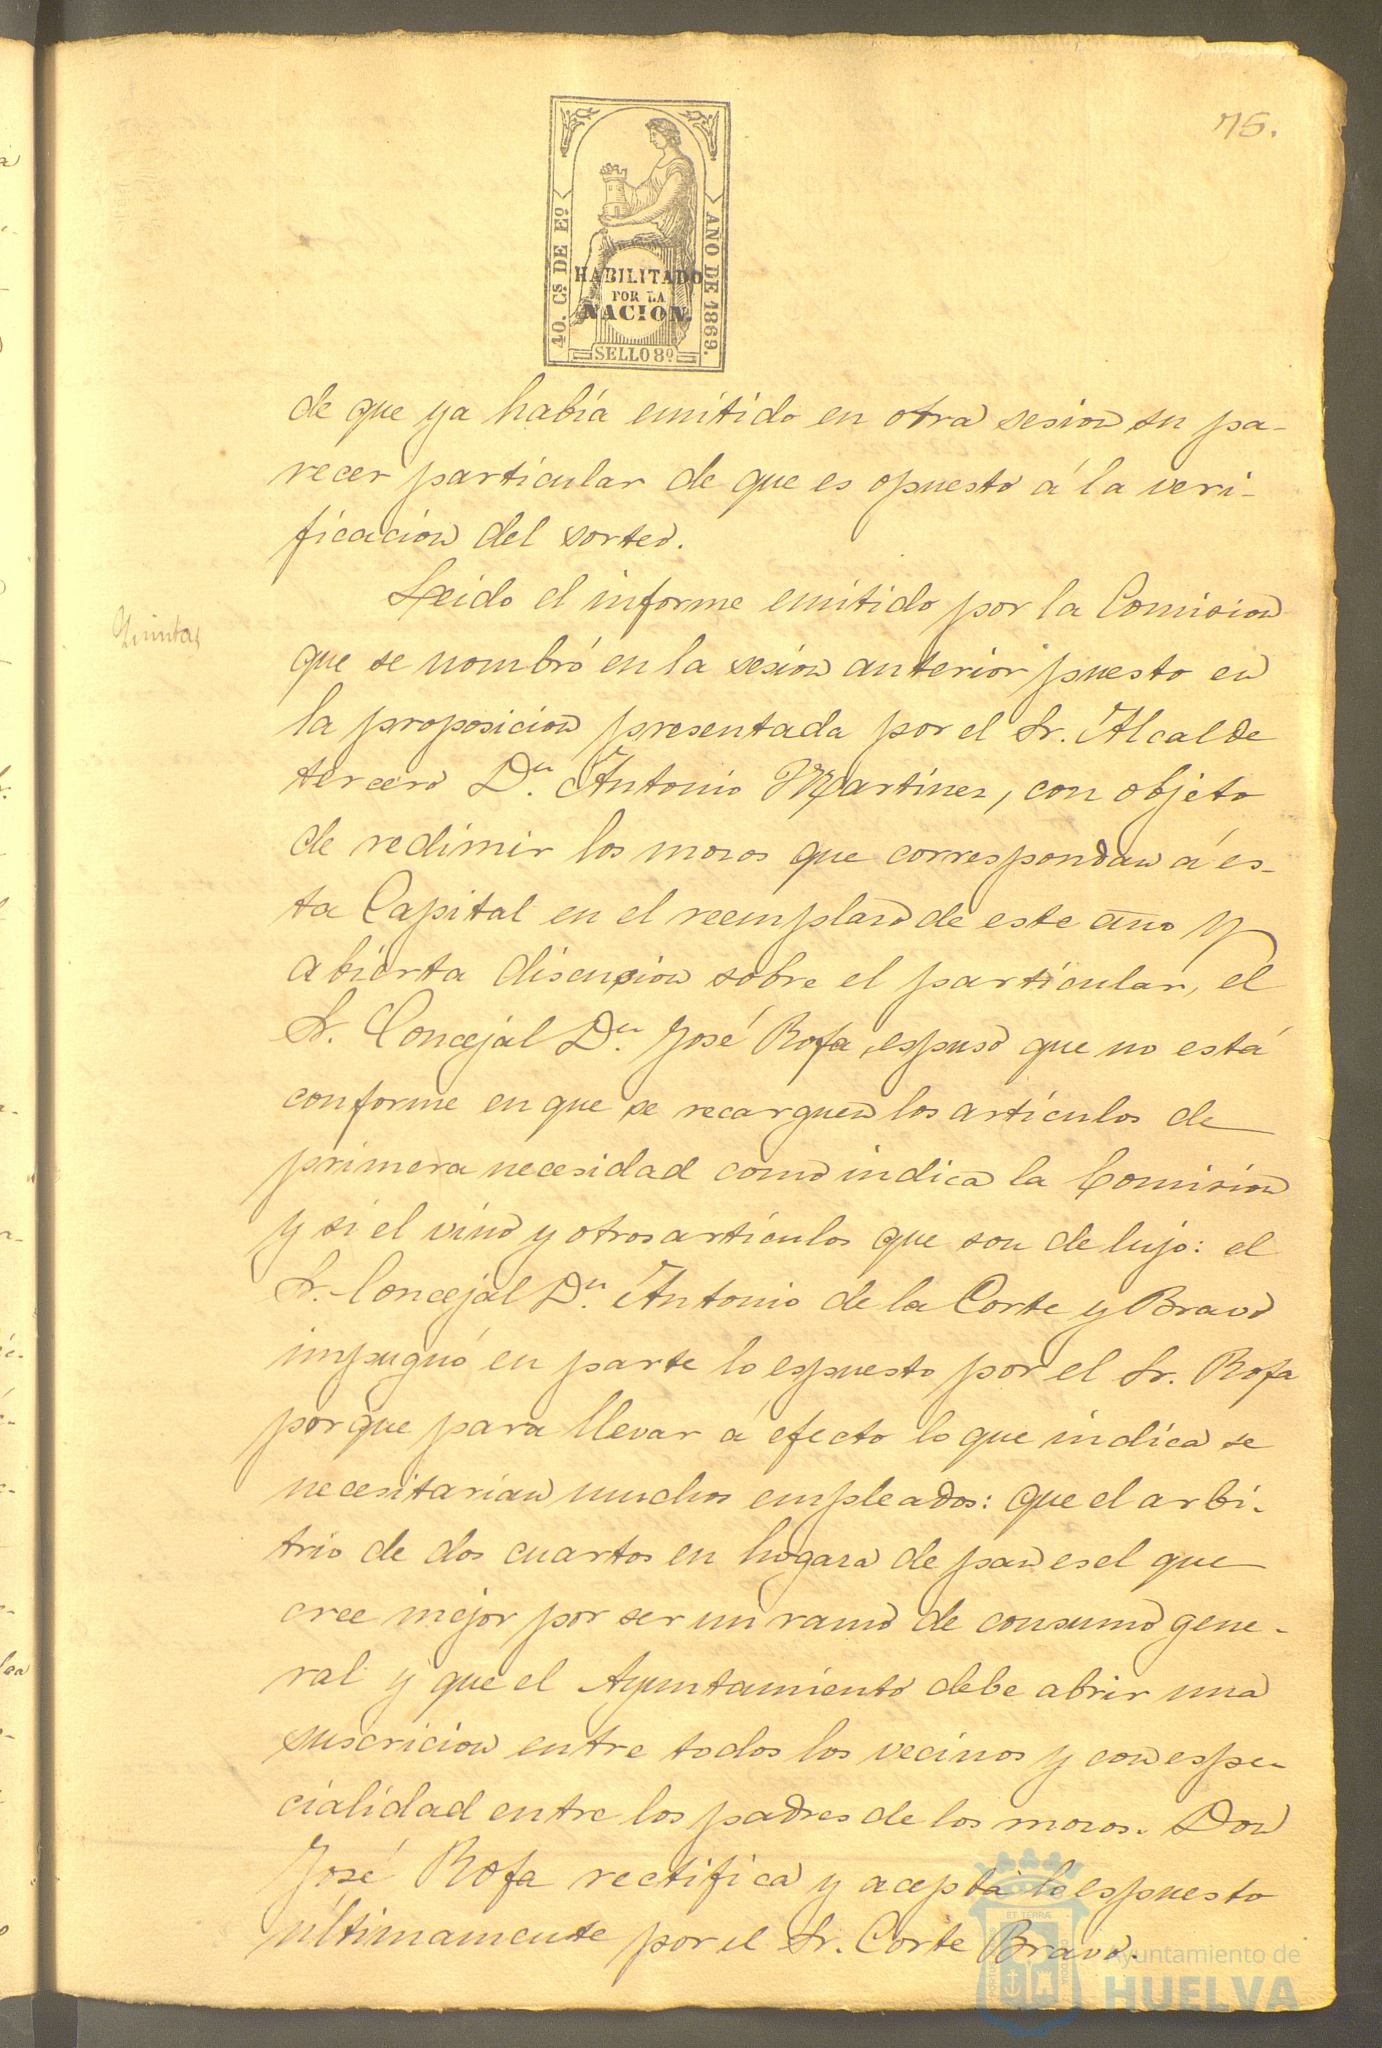 75.
40. Cs DE Eo
AÑO DE 1869.
HABILITADO
POR LA
NACION.
SELLO 8º
de que ya había emitido en otra sesion su pa-
recer particular de que es opuesto á la veri-
ficacion del sorteo.
Quintas
Leido el informe emitido por la Comision
que se nombró en la sesion anterior puesto en
la proposicion presentada por el Sr. Alcalde
tercero Dn. Antonio Martinez, con objeto
de redimir los mozos que correspondan á es-
ta Capital en el reemplazo de este año y
abierta discusion sobre el particular, el
Sr. Concejal Dn. José Rofa, espuso que no está
conforme en que se recarguen los artículos de
primera necesidad como indica la Comision
y si el vino y otros artículos que son de lujo: el
Sr. Concejal Dn. Antonio de la Corte y Bravo
impugnó en parte lo espuesto por el Sr. Rofa
porque para llevar á efecto lo que indica se
necesitarian muchos empleados: que el arbi-
trio de dos cuartos en hogaza de pan es el que
cree mejor por ser un ramo de consumo gene-
ral y que el Ayuntamiento debe abrir una
suscricion entre todos los vecinos y con espe-
cialidad entre los padres de los mozos. Don
José Rofa rectifica y acepta lo espuesto
últimamente por el Sr. Corte Bravo.
Ayuntamiento de
HUELVA